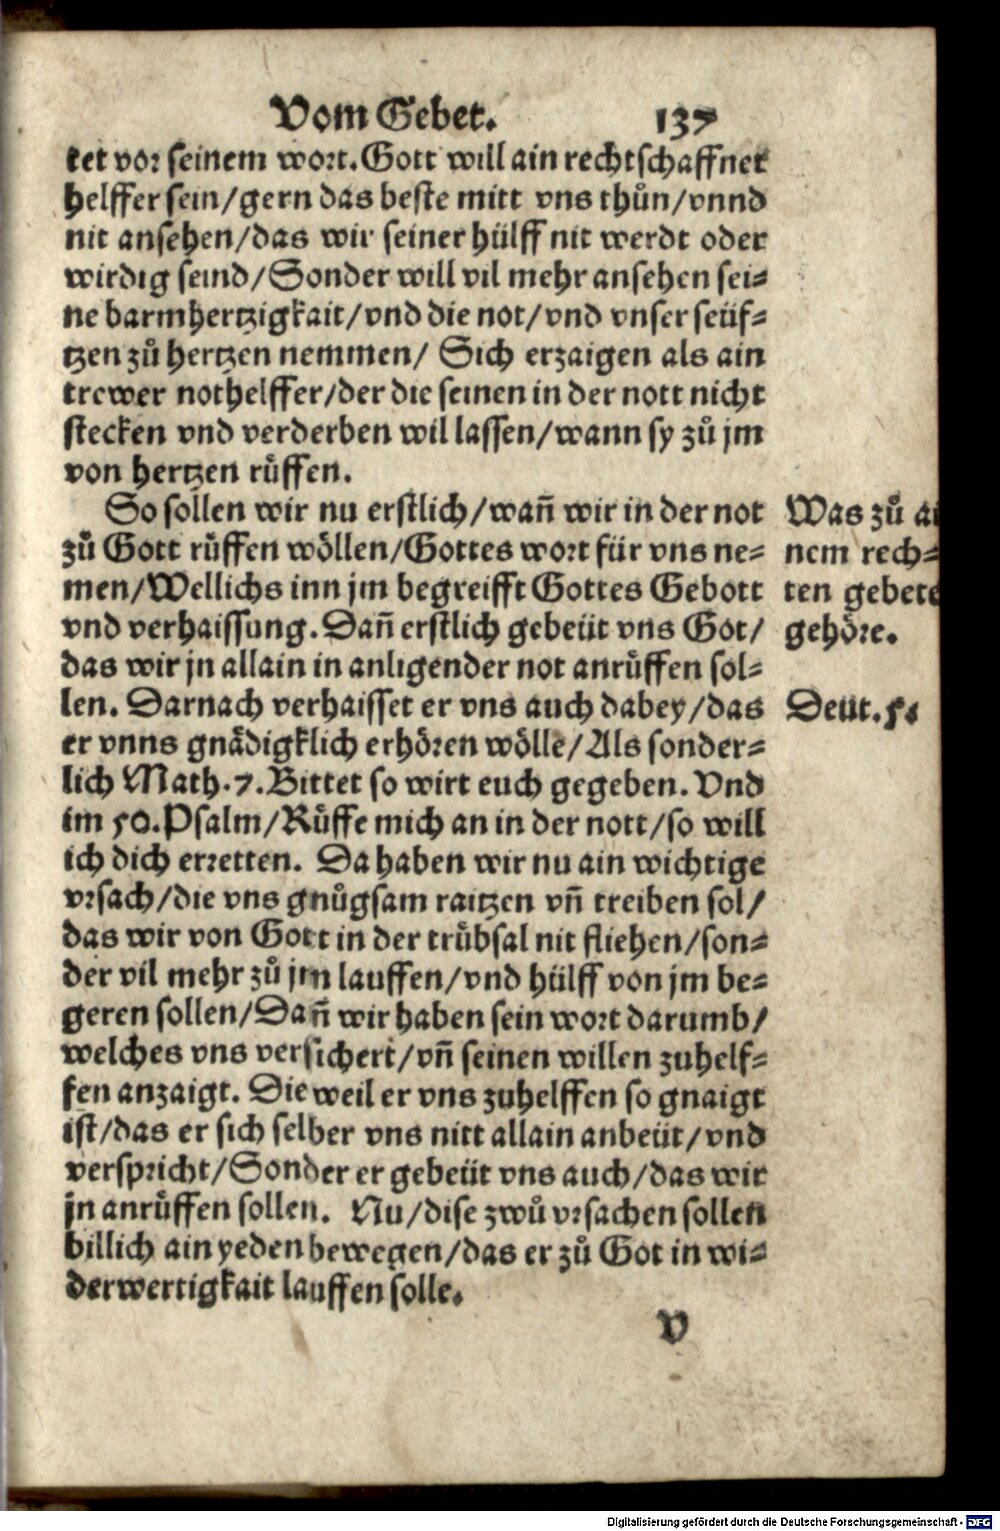 Vom Gebet. 137
tet vor seinem wort. Gott will ain rechtschaffner
helffer sein/gern das beste mitt vns thůn/vnnd
nit ansehen/das wir seiner hülff nit werdt oder
wirdig seind/Sonder will vil mehr ansehen sei⸗
ne barmhertzigkait/vnd die not/vnd vnser seüf⸗
tzen zů hertzen nemmen/ Sich erzaigen als ain
trewer nothelffer/der die seinen in der nott nicht
stecken vnd verderben wil lassen/wann sy zů jm
von hertzen růffen.
So sollen wir nu erstlich/wañ wir in der not
zů Gott růffen wöllen/Gottes wort für vns ne⸗
men/Wellichs inn jm begreifft Gottes Gebott
vnd verhaissung. Dañ erstlich gebeüt vns Got/
das wir jn allain in anligender not anrůffen sol⸗
len. Darnach verhaisset er vns auch dabey/das
er vnns gnädigklich erhören wölle/Als sonder⸗
lich Math. 7. Bittet so wirt euch gegeben. Vnd
im 50. Psalm/Růffe mich an in der nott/so will
ich dich erretten. Da haben wir nu ain wichtige
vrsach/die vns gnůgsam raitzen vñ treiben sol/
das wir von Gott in der trůbsal nit fliehen/son⸗
der vil mehr zů jm lauffen/vnd hülff von jm be⸗
geren sollen/Dañ wir haben sein wort darumb/
welches vns versichert/vñ seinen willen zuhelf⸗
fen anzaigt. Die weil er vns zuhelffen so gnaigt
ist/das er sich selber vns nitt allain anbeüt/vnd
verspricht/Sonder er gebeüt vns auch/das wir
jn anrůffen sollen. Nu/dise zwů vrsachen sollen
billich ain yeden bewegen/das er zů Got in wi⸗
derwertigkait lauffen solle.
V
Was zů ai
nem rech⸗
ten gebete
gehöre.
Deut. 5.
Digitalisierung gefördert durch die Deutsche Forschungsgemeinschaft - DFG